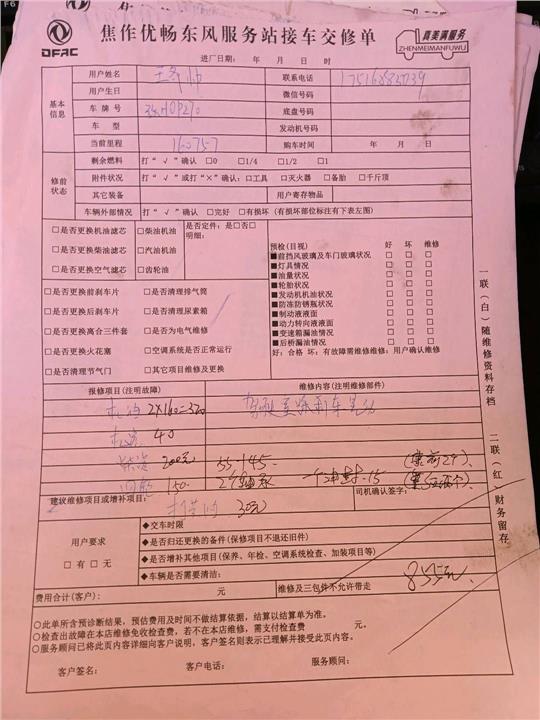 F6
DFAC
焦作优畅东风服务站接车交修单
真美满服务
ZHENMEIMANFUWU
进厂日期: 年 月 日 时
基本信息
用户姓名 联系电话
用户生日 微信号码
车牌号 底盘号码
车型 发动机号码
当前里程 160757 购车时间 年 月 日
修前状态
剩余燃料 打“√”确认 □0 □1/4 □1/2 □1
附件状况 打“√”或打“×”确认: □工具 □灭火器 □备胎 □千斤顶
其它装备 用户寄存物品
车辆外部情况 打“√”确认 □完好 □有损坏 (有损坏部位标注有下表左图)
□是否更换机油滤芯 □柴油机油 是否定件: 是□否□
明细:
□是否更换柴油滤芯 □汽油机油
□是否更换空气滤芯 □齿轮油
预检(目视) 好 坏 维修
■前挡风玻璃及车门玻璃状况 □ □ □
■灯具情况 □ □ □
■油量状况 □ □ □
■轮胎状况 □ □ □
■发动机机油状况 □ □ □
■防冻防锈瓶状况 □ □ □
■制动液液面 □ □ □
■动力转向液液面 □ □ □
■变速箱漏油情况 □ □ □
■后桥漏油情况 □ □ □
好: 合格 坏: 有故障需维修维修: 用户确认维修
□是否更换前刹车片 □是否清理排气筒
□是否更换后刹车片 □是否清理尿素箱
□是否更换离合三件套 □是否为电气维修
□是否更换火花塞 □空调系统是否正常运行
□是否清理节气门 □其它项目维修及更换
报修项目(注明故障) 维修内容(注明维修部件)
2×160=320
40
200元 55 145
150 15
建议维修项目或增补项目: 司机确认签字:
30元
用户要求
□有 □无
◆交车时限
◆是否归还更换的备件(保修项目不退还旧件)
◆是否增补其他项目(保养、年检、空调系统检查、加装项目等)
◆车辆是否需要清洁:
费用合计(客户): 元 维修及三包件不允许带走
855元
○此单所含预诊断结果,预估费用及时间不做结算依据,结算以结算单为准。
○检查出故障在本店维修免收检查费,若不在本店维修,需支付检查费 元。
○服务顾问已将此页内容详细向客户说明,客户签名则表示已理解并接受此页内容。
客户签名: 客户电话: 服务顾问:
一联(白)随维修资料存档
二联(红)财务留存